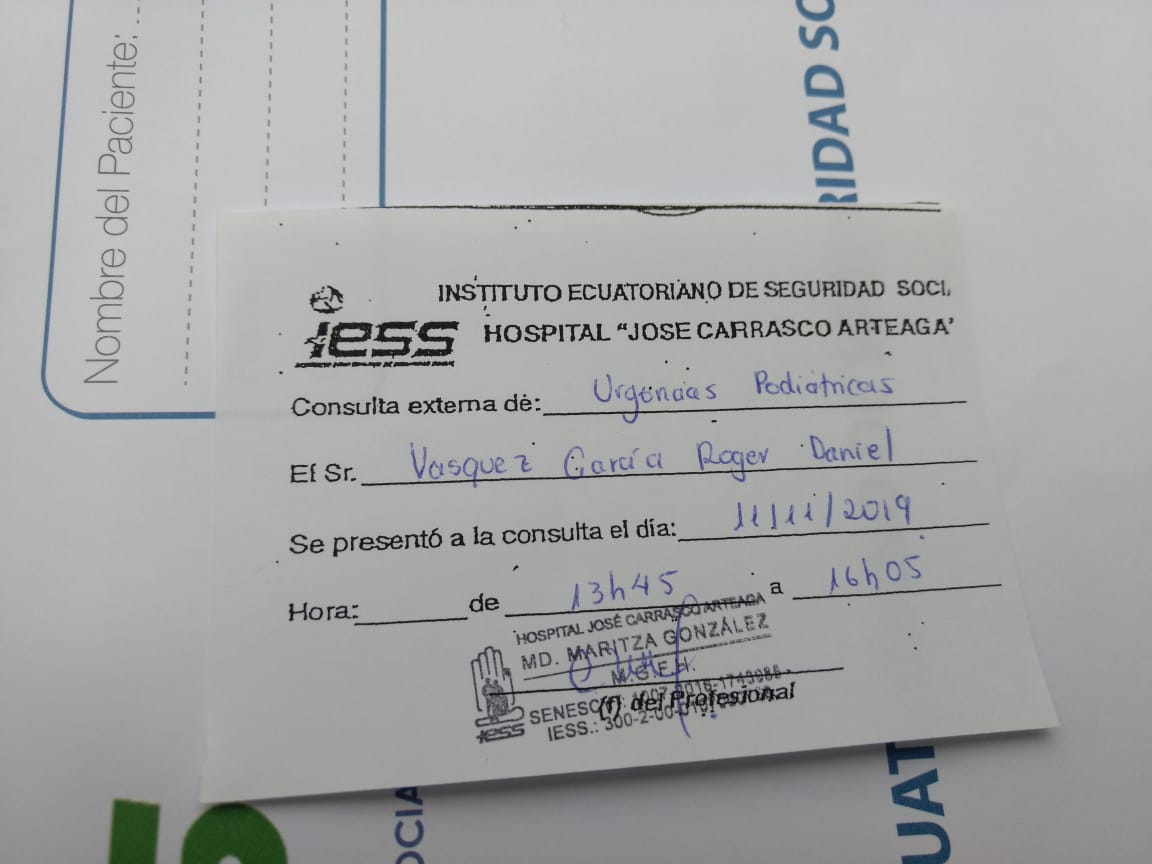 Nombre del Paciente:
RIDAD SO
INSTITUTO ECUATORIANO DE SEGURIDAD SOCI
iESS
HOSPITAL "JOSE CARRASCO ARTEAGA"
Consulta externa de: Urgencias Pediátricas
El Sr. Vasquez García Roger Daniel
Se presentó a la consulta el día: 11/11/2019
Hora: de 13h45 a 16h05
HOSPITAL JOSÉ CARRASCO ARTEAGA
MD. MARITZA GONZÁLEZ
M.G.E.H.
SENESCYT:
(f) del Profesional
IESS.: 300-2-00-
iess
OCIA
UAT